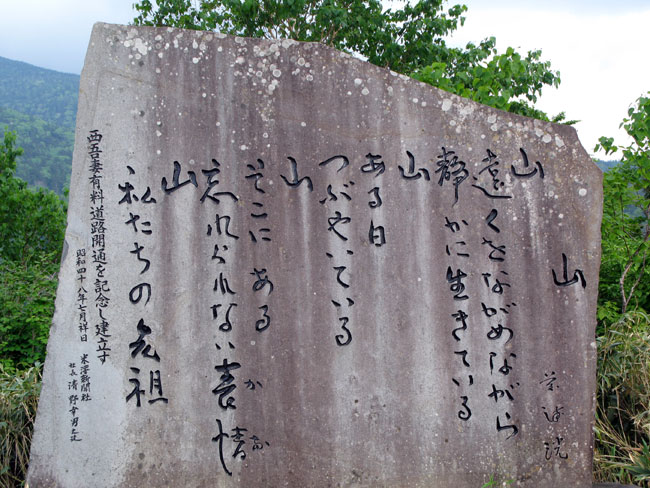 山
山
遠くをながめながら
静かに生きている
山
ある日
つぶやいている
山
そこにある
忘れられない表情
かお
山
私たちの先祖
西吾妻有料道路開通を記念し建立す
昭和四十八年七月祥日
米澤新聞社
社長 清野幸男